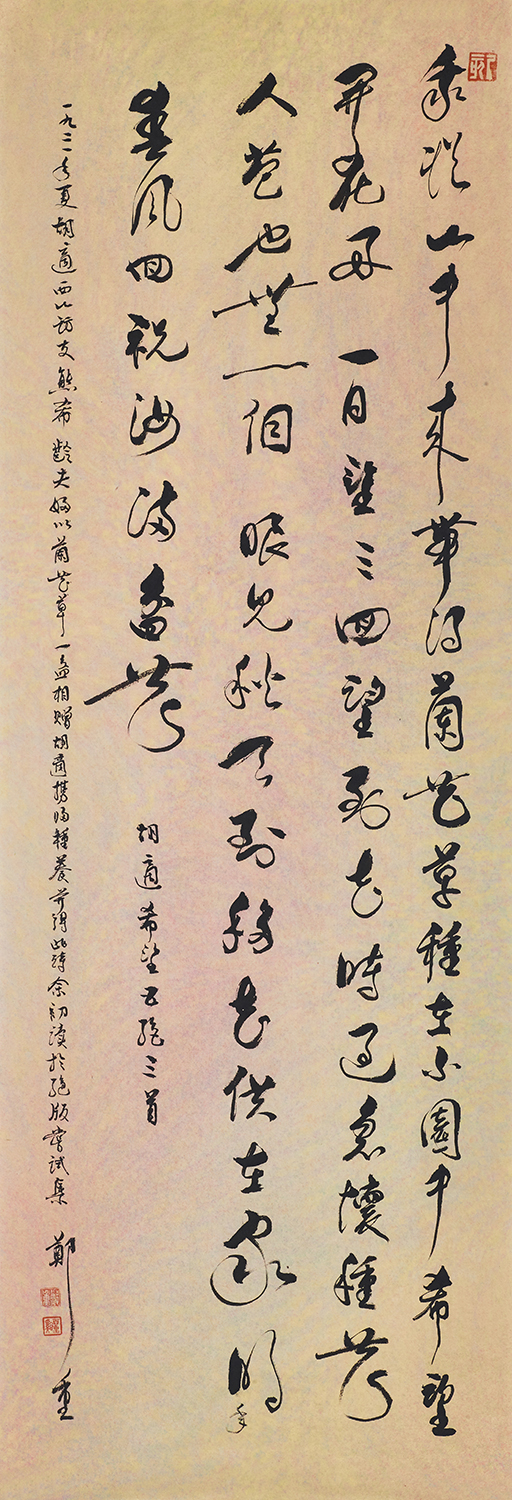 我從山中來帶得蘭花草種在小園中希望
開花好 一日望三回望到花時過急壞種花
人苞也無一個 眼見秋天到移花供在家明年
春風回祝汝滿盆花
胡適希望五絕三首
一九二一年夏胡適西山訪友熊希齡夫婦以蘭花草一盆相贈胡適攜歸種養並得此詩余初讀於絕版嘗試集 鄭重